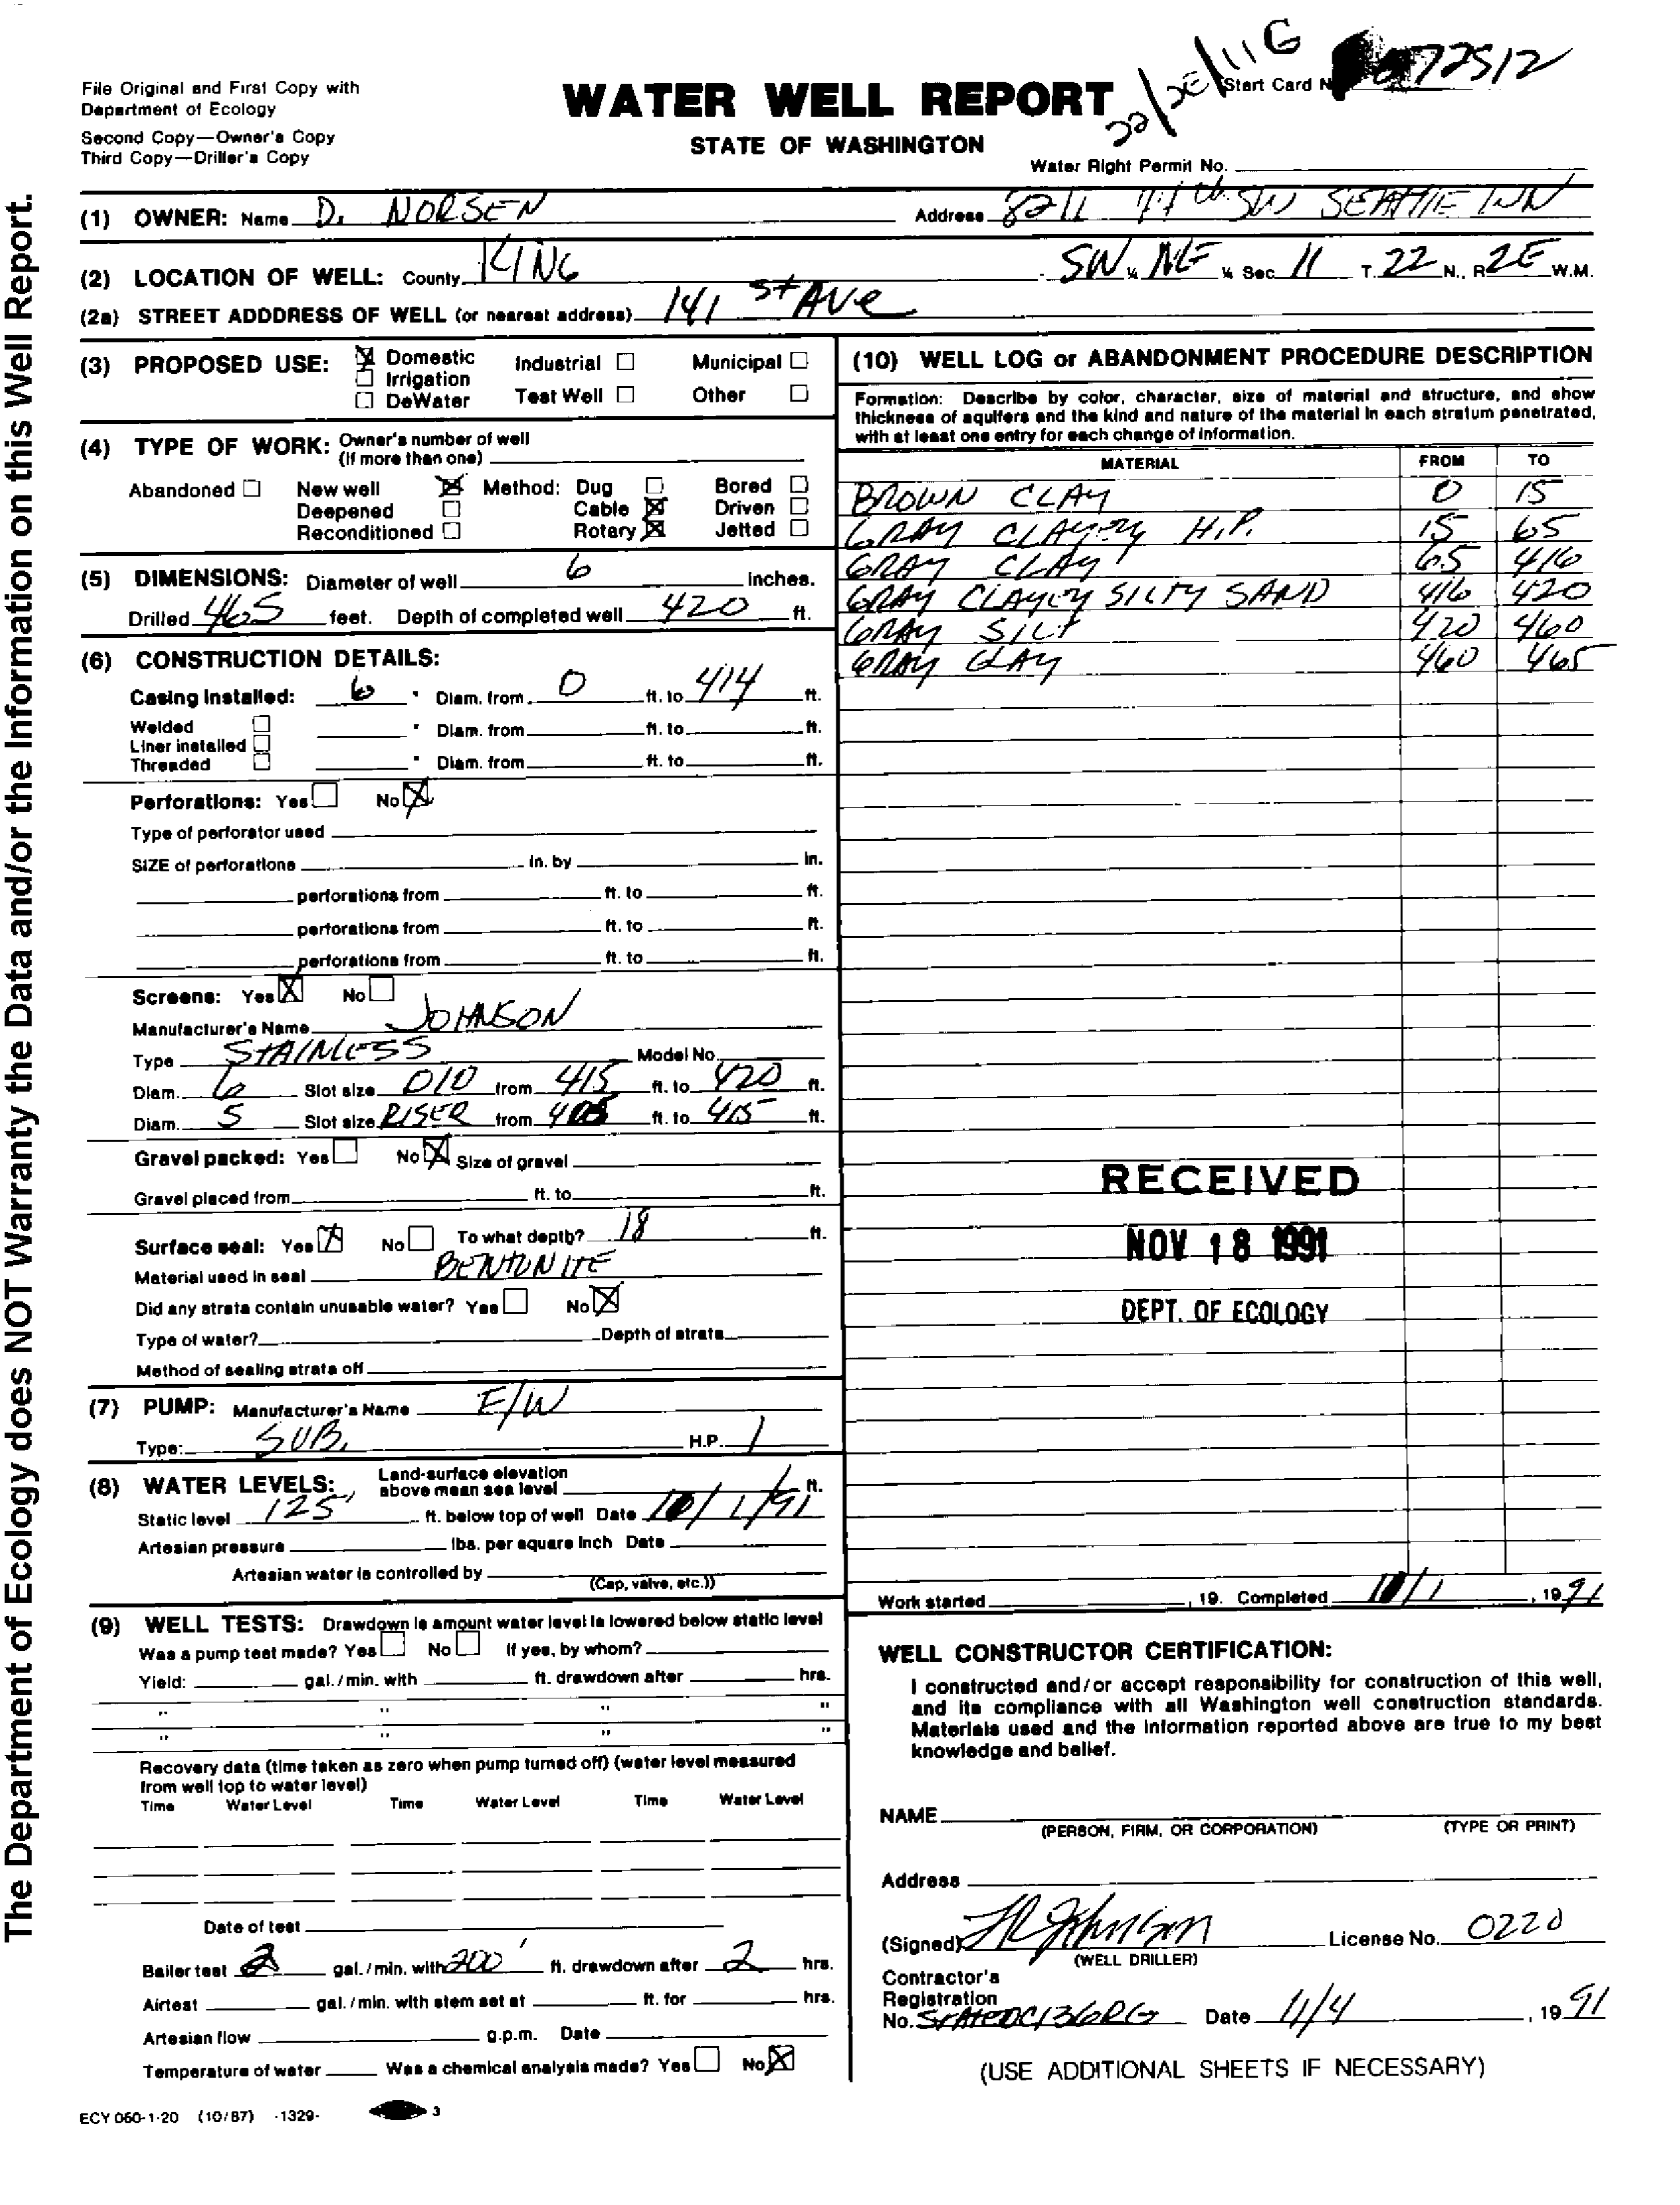 File Original and First Copy with
Department of Ecology
Second Copy—Owner's Copy
Third Copy—Driller's Copy
WATER WELL REPORT
STATE OF WASHINGTON
22/2E/11G
Start Card N
Water Right Permit No.
The Department of Ecology does NOT Warranty the Data and/or the Information on this Well Report.
(1) OWNER: Name D. NORSEN Address SW SEATTLE WN
(2) LOCATION OF WELL: County KING - SW ¼ NE ¼ Sec 11 T. 22 N., R 2E W.M.
(2a) STREET ADDDRESS OF WELL (or nearest address) 141 st AVe
(3) PROPOSED USE: Domestic Industrial Municipal
Irrigation
DeWater Test Well Other
(4) TYPE OF WORK: Owner's number of well
(If more than one)
Abandoned New well Method: Dug Bored
Deepened Cable Driven
Reconditioned Rotary Jetted
(5) DIMENSIONS: Diameter of well 6 inches.
Drilled 465 feet. Depth of completed well 420 ft.
(6) CONSTRUCTION DETAILS:
Casing installed: 6 " Diam. from 0 ft. to 414 ft.
Welded " Diam. from ft. to ft.
Liner installed
Threaded " Diam. from ft. to ft.
Perforations: Yes No
Type of perforator used
SIZE of perforations in. by in.
perforations from ft. to ft.
perforations from ft. to ft.
perforations from ft. to ft.
Screens: Yes No
Manufacturer's Name JOHNSON
Type STAINLESS Model No.
Diam. 6 Slot size 010 from 415 ft. to 420 ft.
Diam. 5 Slot size RISER from ft. to 415 ft.
Gravel packed: Yes No Size of gravel
Gravel placed from ft. to ft.
Surface seal: Yes No To what depth? 18 ft.
Material used in seal BENTONITE
Did any strata contain unusable water? Yes No
Type of water? Depth of strata
Method of sealing strata off
(7) PUMP: Manufacturer's Name F/W
Type: SUB. H.P. 1
(8) WATER LEVELS: Land-surface elevation
above mean sea level ft.
Static level 125' ft. below top of well Date 10/1/91
Artesian pressure lbs. per square inch Date
Artesian water is controlled by
(Cap, valve, etc.))
(9) WELL TESTS: Drawdown is amount water level is lowered below static level
Was a pump test made? Yes No If yes, by whom?
Yield: gal./min. with ft. drawdown after hrs.
" " " "
" " " "
Recovery data (time taken as zero when pump turned off) (water level measured
from well top to water level)
Time Water Level Time Water Level Time Water Level
Date of test
Bailer test 2 gal./min. with 200' ft. drawdown after 2 hrs.
Airtest gal./min. with stem set at ft. for hrs.
Artesian flow g.p.m. Date
Temperature of water Was a chemical analysis made? Yes No
ECY 050-1-20 (10/87) -1329- 3
(10) WELL LOG or ABANDONMENT PROCEDURE DESCRIPTION
Formation: Describe by color, character, size of material and structure, and show
thickness of aquifers and the kind and nature of the material in each stratum penetrated,
with at least one entry for each change of information.
MATERIAL FROM TO
BROWN CLAY 0 15
GRAY CLAYEY H.P. 15 65
GRAY CLAY 65 416
GRAY CLAYEY SILTY SAND 416 420
GRAY SILT 420 460
GRAY CLAY 460 465
RECEIVED
NOV 18 1991
DEPT. OF ECOLOGY
Work started , 19. Completed 10/1 , 19 91
WELL CONSTRUCTOR CERTIFICATION:
I constructed and/or accept responsibility for construction of this well,
and its compliance with all Washington well construction standards.
Materials used and the information reported above are true to my best
knowledge and belief.
NAME
(PERSON, FIRM, OR CORPORATION) (TYPE OR PRINT)
Address
(Signed) Johnson License No. 0220
(WELL DRILLER)
Contractor's
Registration
No. Date 11/4 , 19 91
(USE ADDITIONAL SHEETS IF NECESSARY)